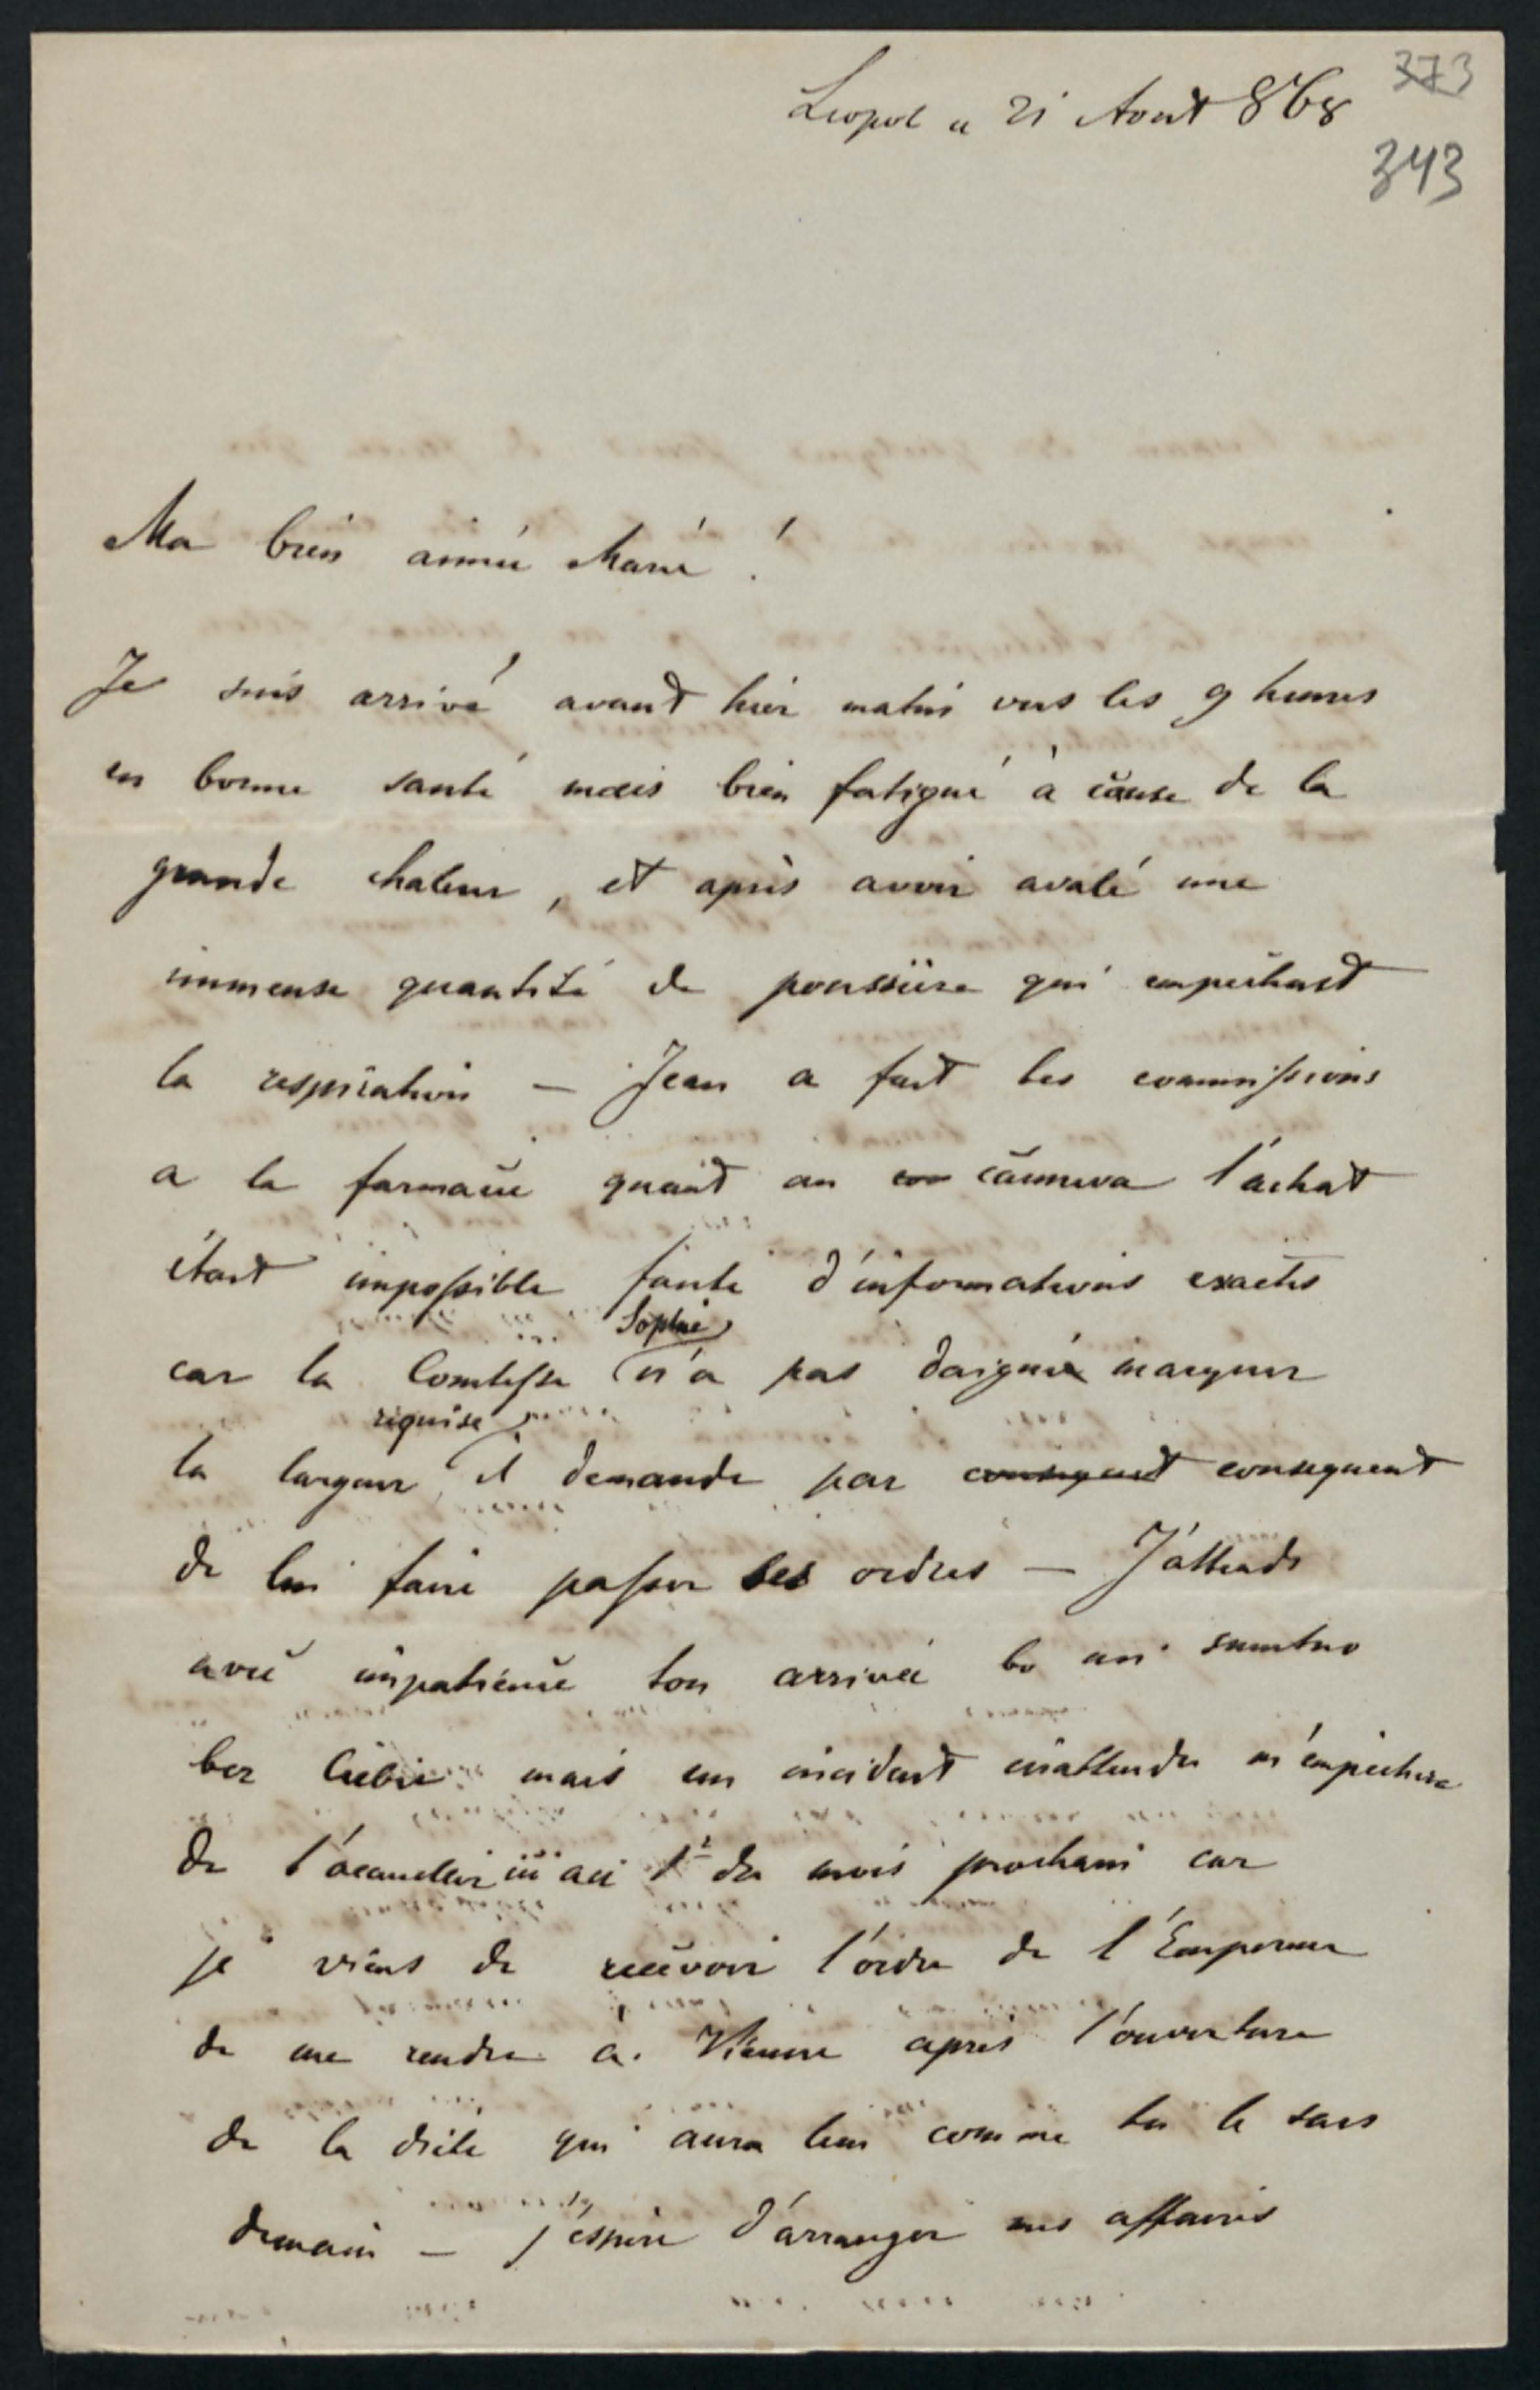 Leopol " 21 Aout 868
373
343
Ma bien aimée Marie !
Je suis arrivé avant hier matin vers les 9 heures
en bonne santé mais bien fatigué à cause de la
grande chaleur, et après avoir avalé une
immense quantité de poussiere qui empechast
la respiration – Jean a fait les commissions
a la farmacie quant au con canneva l'achat
étant impossible faute d'informations exactes
car la Comtesse Sophie n'a pas daignée marquer
la largeur requise, il demande par consequent consequent
de lui faire passer ses ordres – J'attends
avec impatience ton arrivée bo mi smutno
bez Ciebie mais un incident inattendu m'empechera
de au 1r du mois prochain car
je viens de recevoir l'ordre de l'Empereur
de me rendre à Vienne après l'ouverture
de la diète qui aura lieu comme tu le sais
demain – j'éspère d'arranger mes affaires